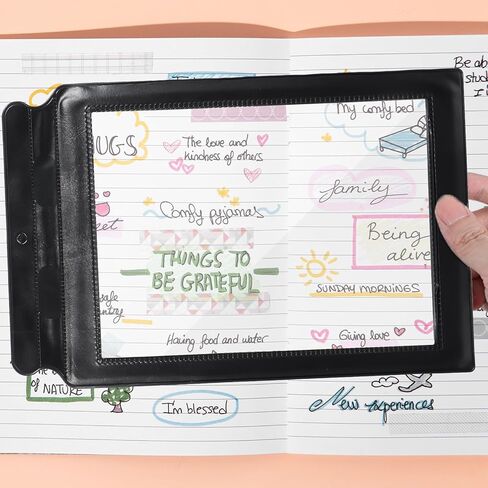 Be ab
stud
I
My comfy bed
UGS
The love and
kindness of others
family
Comfy pyjamas
Being
alive
THINGS TO
BE GRATEFUL
SUNDAY MORNINGS
safe
country
Having food and water
Giving love
of NATURE
I'm blessed
New experiences